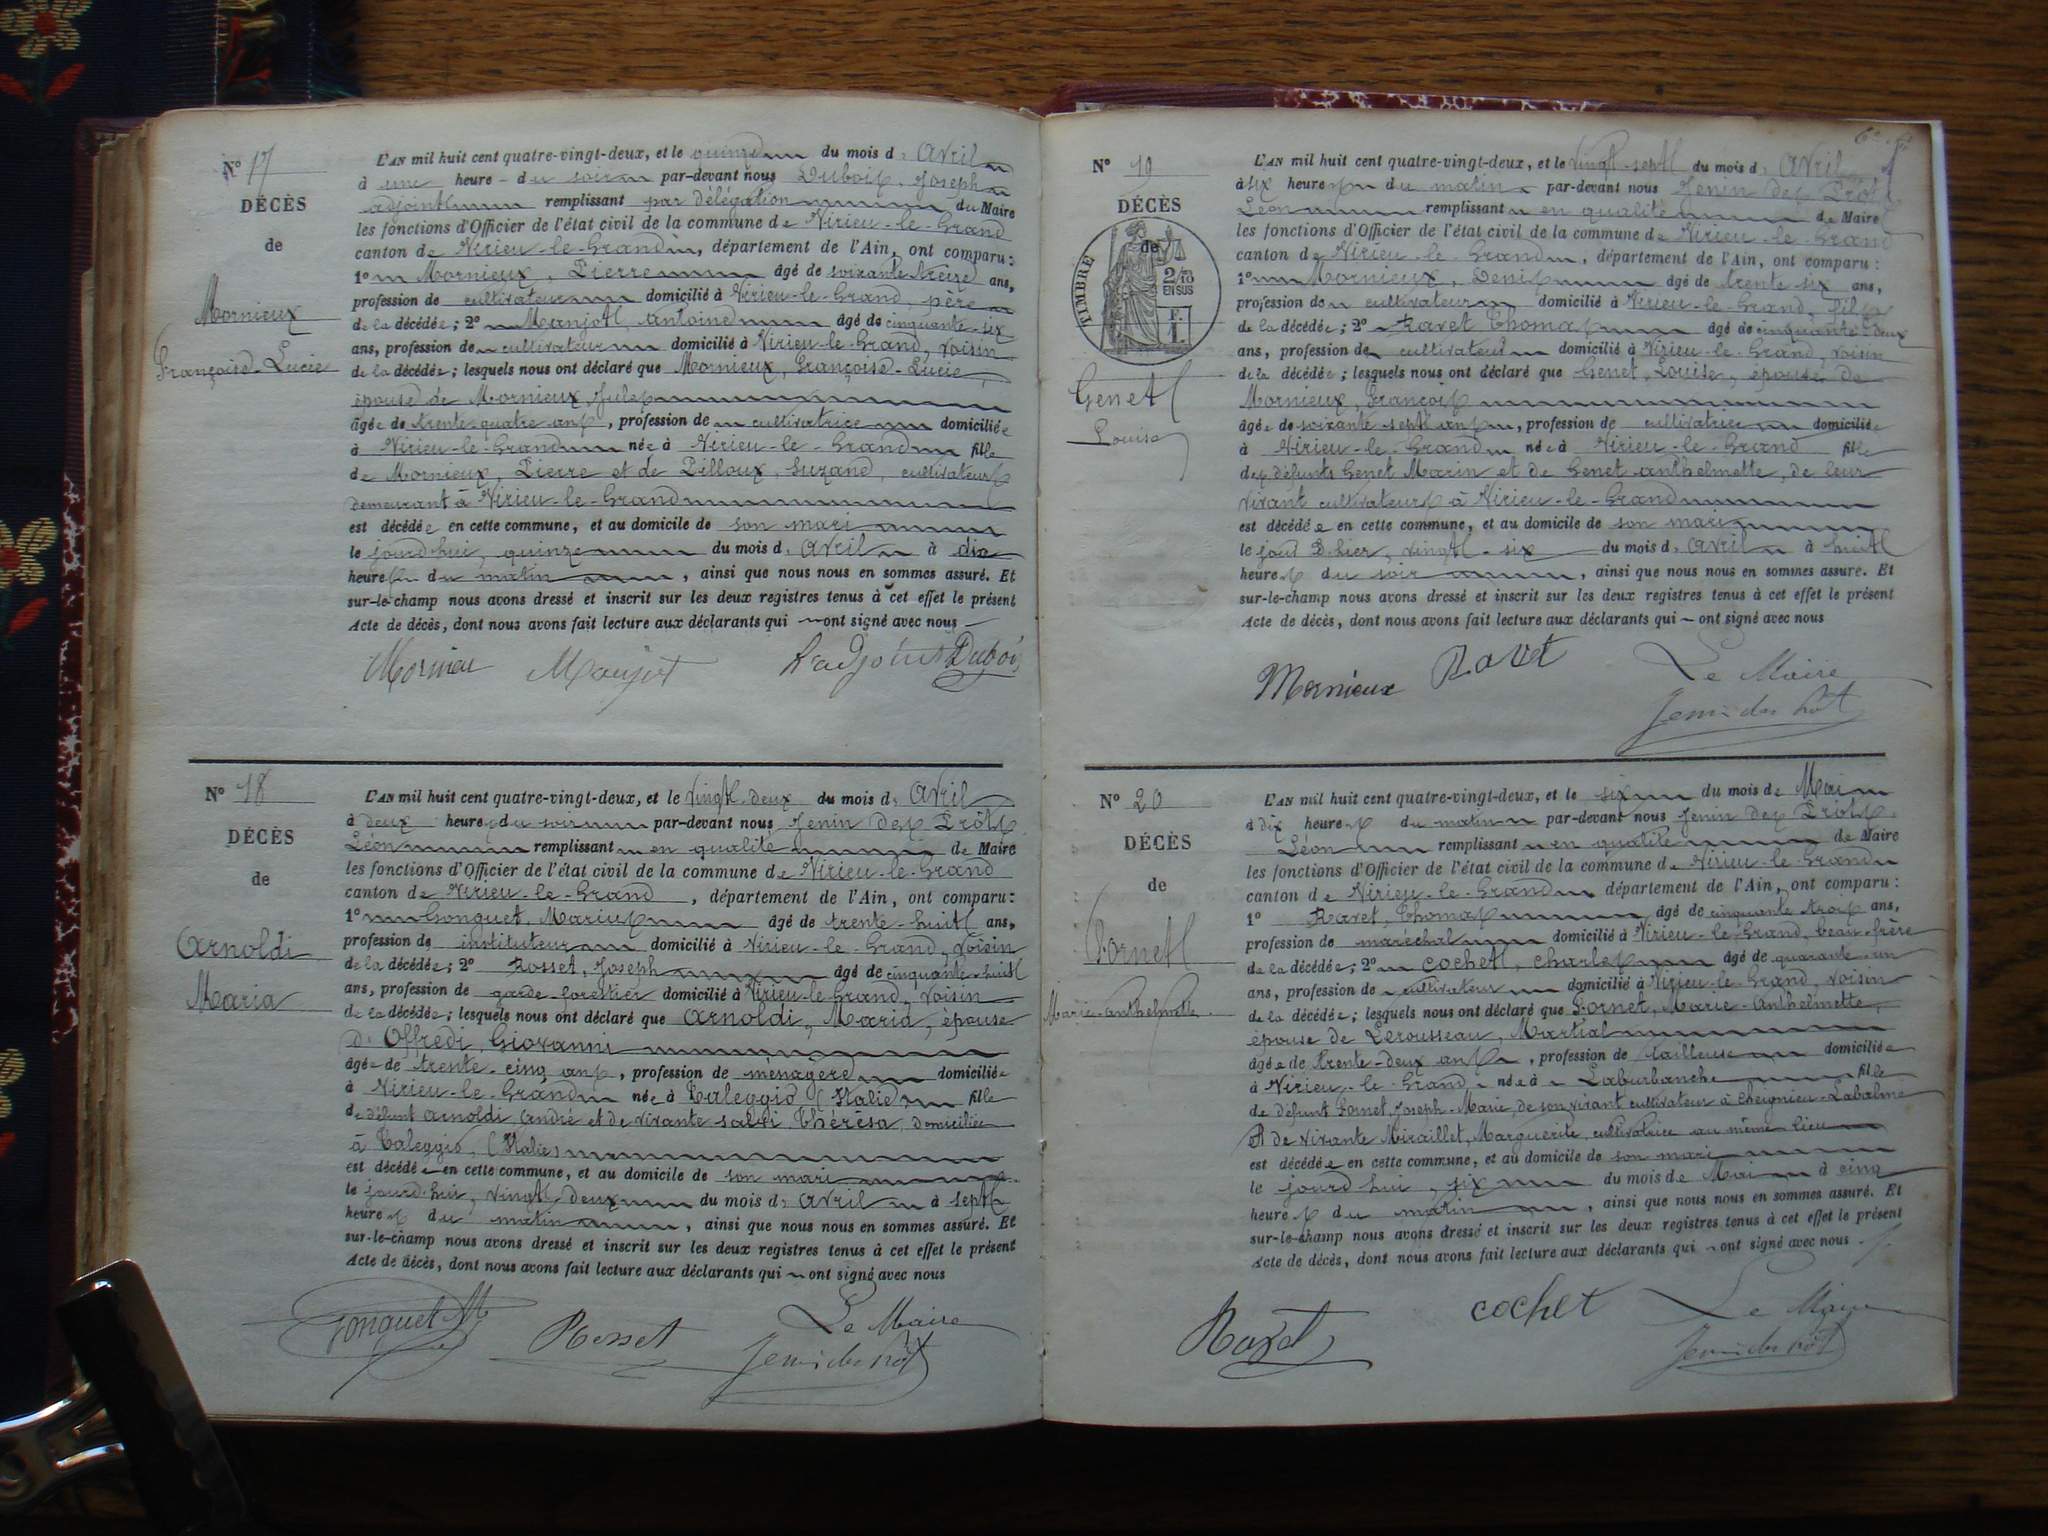 N° 17
DÉCÈS
de
Mornieux
Françoise-Lucie
L'AN mil huit cent quatre-vingt-deux, et le quinze du mois d' Avril
à une heure du soir par-devant nous Dubois, Joseph
adjoint remplissant par délégation du Maire
les fonctions d'Officier de l'état civil de la commune de Virieu-le-Grand
canton de Virieu-le-Grand, département de l'Ain, ont comparu :
1° Mornieux, Pierre âgé de soixante treize ans,
profession de cultivateur domicilié à Virieu-le-Grand, père
de la décédée ; 2° Manjot, Antoine âgé de cinquante-six
ans, profession de cultivateur domicilié à Virieu-le-Grand, voisin
de la décédée ; lesquels nous ont déclaré que Mornieux, Françoise-Lucie,
épouse de Mornieux, Jules
âgée de trente-quatre ans, profession de cultivatrice domiciliée
à Virieu-le-Grand née à Virieu-le-Grand fille
de Mornieux, Pierre et de Pilloux, Suzane, cultivateurs
demeurant à Virieu-le-Grand
est décédée en cette commune, et au domicile de son mari
le jourd'hui, quinze du mois d' Avril à dix
heures du matin, ainsi que nous nous en sommes assuré. Et
sur-le-champ nous avons dressé et inscrit sur les deux registres tenus à cet effet le présent
Acte de décès, dont nous avons fait lecture aux déclarants qui ont signé avec nous
Mornieu Manjot L'adjoint Dubois
N° 18
DÉCÈS
de
Arnoldi
Maria
L'AN mil huit cent quatre-vingt-deux, et le vingt-deux du mois d' Avril
à deux heures du soir par-devant nous Jenin des Prôts
Léon remplissant en qualité de Maire
les fonctions d'Officier de l'état civil de la commune de Virieu-le-Grand
canton de Virieu-le-Grand, département de l'Ain, ont comparu :
1° Gonguet, Marius âgé de trente-huit ans,
profession de instituteur domicilié à Virieu-le-Grand, voisin
de la décédée ; 2° Rosset, Joseph âgé de cinquante-huit
ans, profession de garde-forestier domicilié à Virieu-le-Grand, voisin
de la décédée ; lesquels nous ont déclaré que Arnoldi, Maria, épouse
d' Offredi, Giovanni
âgée de trente-cinq ans, profession de ménagère domiciliée
à Virieu-le-Grand née à Taleggio (Italie) fille
de défunt Arnoldi, André et de vivante Salvi Thérésa, domiciliée
à Taleggio, (Italie)
est décédée en cette commune, et au domicile de son mari
le jourd'hui, vingt deux du mois d' Avril à sept
heures du matin, ainsi que nous nous en sommes assuré. Et
sur-le-champ nous avons dressé et inscrit sur les deux registres tenus à cet effet le présent
Acte de décès, dont nous avons fait lecture aux déclarants qui ont signé avec nous
Gonguet M Rosset Le Maire
Jenin des Prôts
N° 19
DÉCÈS
de
TIMBRE
2/10
EN SUS
F.
1
Genet
Louise
L'AN mil huit cent quatre-vingt-deux, et le vingt-sept du mois d' Avril
à six heures du matin par-devant nous Jenin des Prôts
Léon remplissant en qualité de Maire
les fonctions d'Officier de l'état civil de la commune de Virieu-le-Grand
canton de Virieu-le-Grand, département de l'Ain, ont comparu :
1° Mornieux, Denis âgé de trente six ans,
profession de cultivateur domicilié à Virieu-le-Grand, fils
de la décédée ; 2° Ravet Thomas âgé de cinquante-deux
ans, profession de cultivateur domicilié à Virieu-le-Grand, voisin
de la décédée ; lesquels nous ont déclaré que Genet, Louise, épouse de
Mornieux, François
âgée de soixante-sept ans, profession de cultivatrice domiciliée
à Virieu-le-Grand née à Virieu-le-Grand fille
des défunts Genet Marin et de Genet Anthelmette, de leur
vivant cultivateurs à Virieu-le-Grand
est décédée en cette commune, et au domicile de son mari
le jour d'hier, vingt-six du mois d' Avril à huit
heures du soir, ainsi que nous nous en sommes assuré. Et
sur-le-champ nous avons dressé et inscrit sur les deux registres tenus à cet effet le présent
Acte de décès, dont nous avons fait lecture aux déclarants qui ont signé avec nous
Mornieux Ravet Le Maire
Jenin des Prôts
N° 20
DÉCÈS
de
Fornet
Marie-Anthelmette
L'AN mil huit cent quatre-vingt-deux, et le six du mois de Mai
à dix heures du matin par-devant nous Jenin des Prôts
Léon remplissant en qualité de Maire
les fonctions d'Officier de l'état civil de la commune de Virieu-le-Grand
canton de Virieu-le-Grand département de l'Ain, ont comparu :
1° Ravet, Thomas âgé de cinquante trois ans,
profession de maréchal domicilié à Virieu-le-Grand, beau-frère
de la décédée ; 2° Cochet, Charles âgé de quarante-un
ans, profession de cultivateur domicilié à Virieu-le-Grand, voisin
de la décédée ; lesquels nous ont déclaré que Fornet, Marie-Anthelmette,
épouse de Lerousseau, Martial
âgée de trente-deux ans, profession de tailleuse domiciliée
à Virieu-le-Grand née à Laburbanche fille
de défunt Fornet, Joseph-Marie, de son vivant cultivateur à Cheignieu-Labalme
et de vivante Miraillet, Marguerite, cultivatrice au même lieu
est décédée en cette commune, et au domicile de son mari
le jourd'hui, six du mois de Mai à cinq
heures du matin, ainsi que nous nous en sommes assuré. Et
sur-le-champ nous avons dressé et inscrit sur les deux registres tenus à cet effet le présent
Acte de décès, dont nous avons fait lecture aux déclarants qui ont signé avec nous
Ravet Cochet Le Maire
Jenin des Prôts